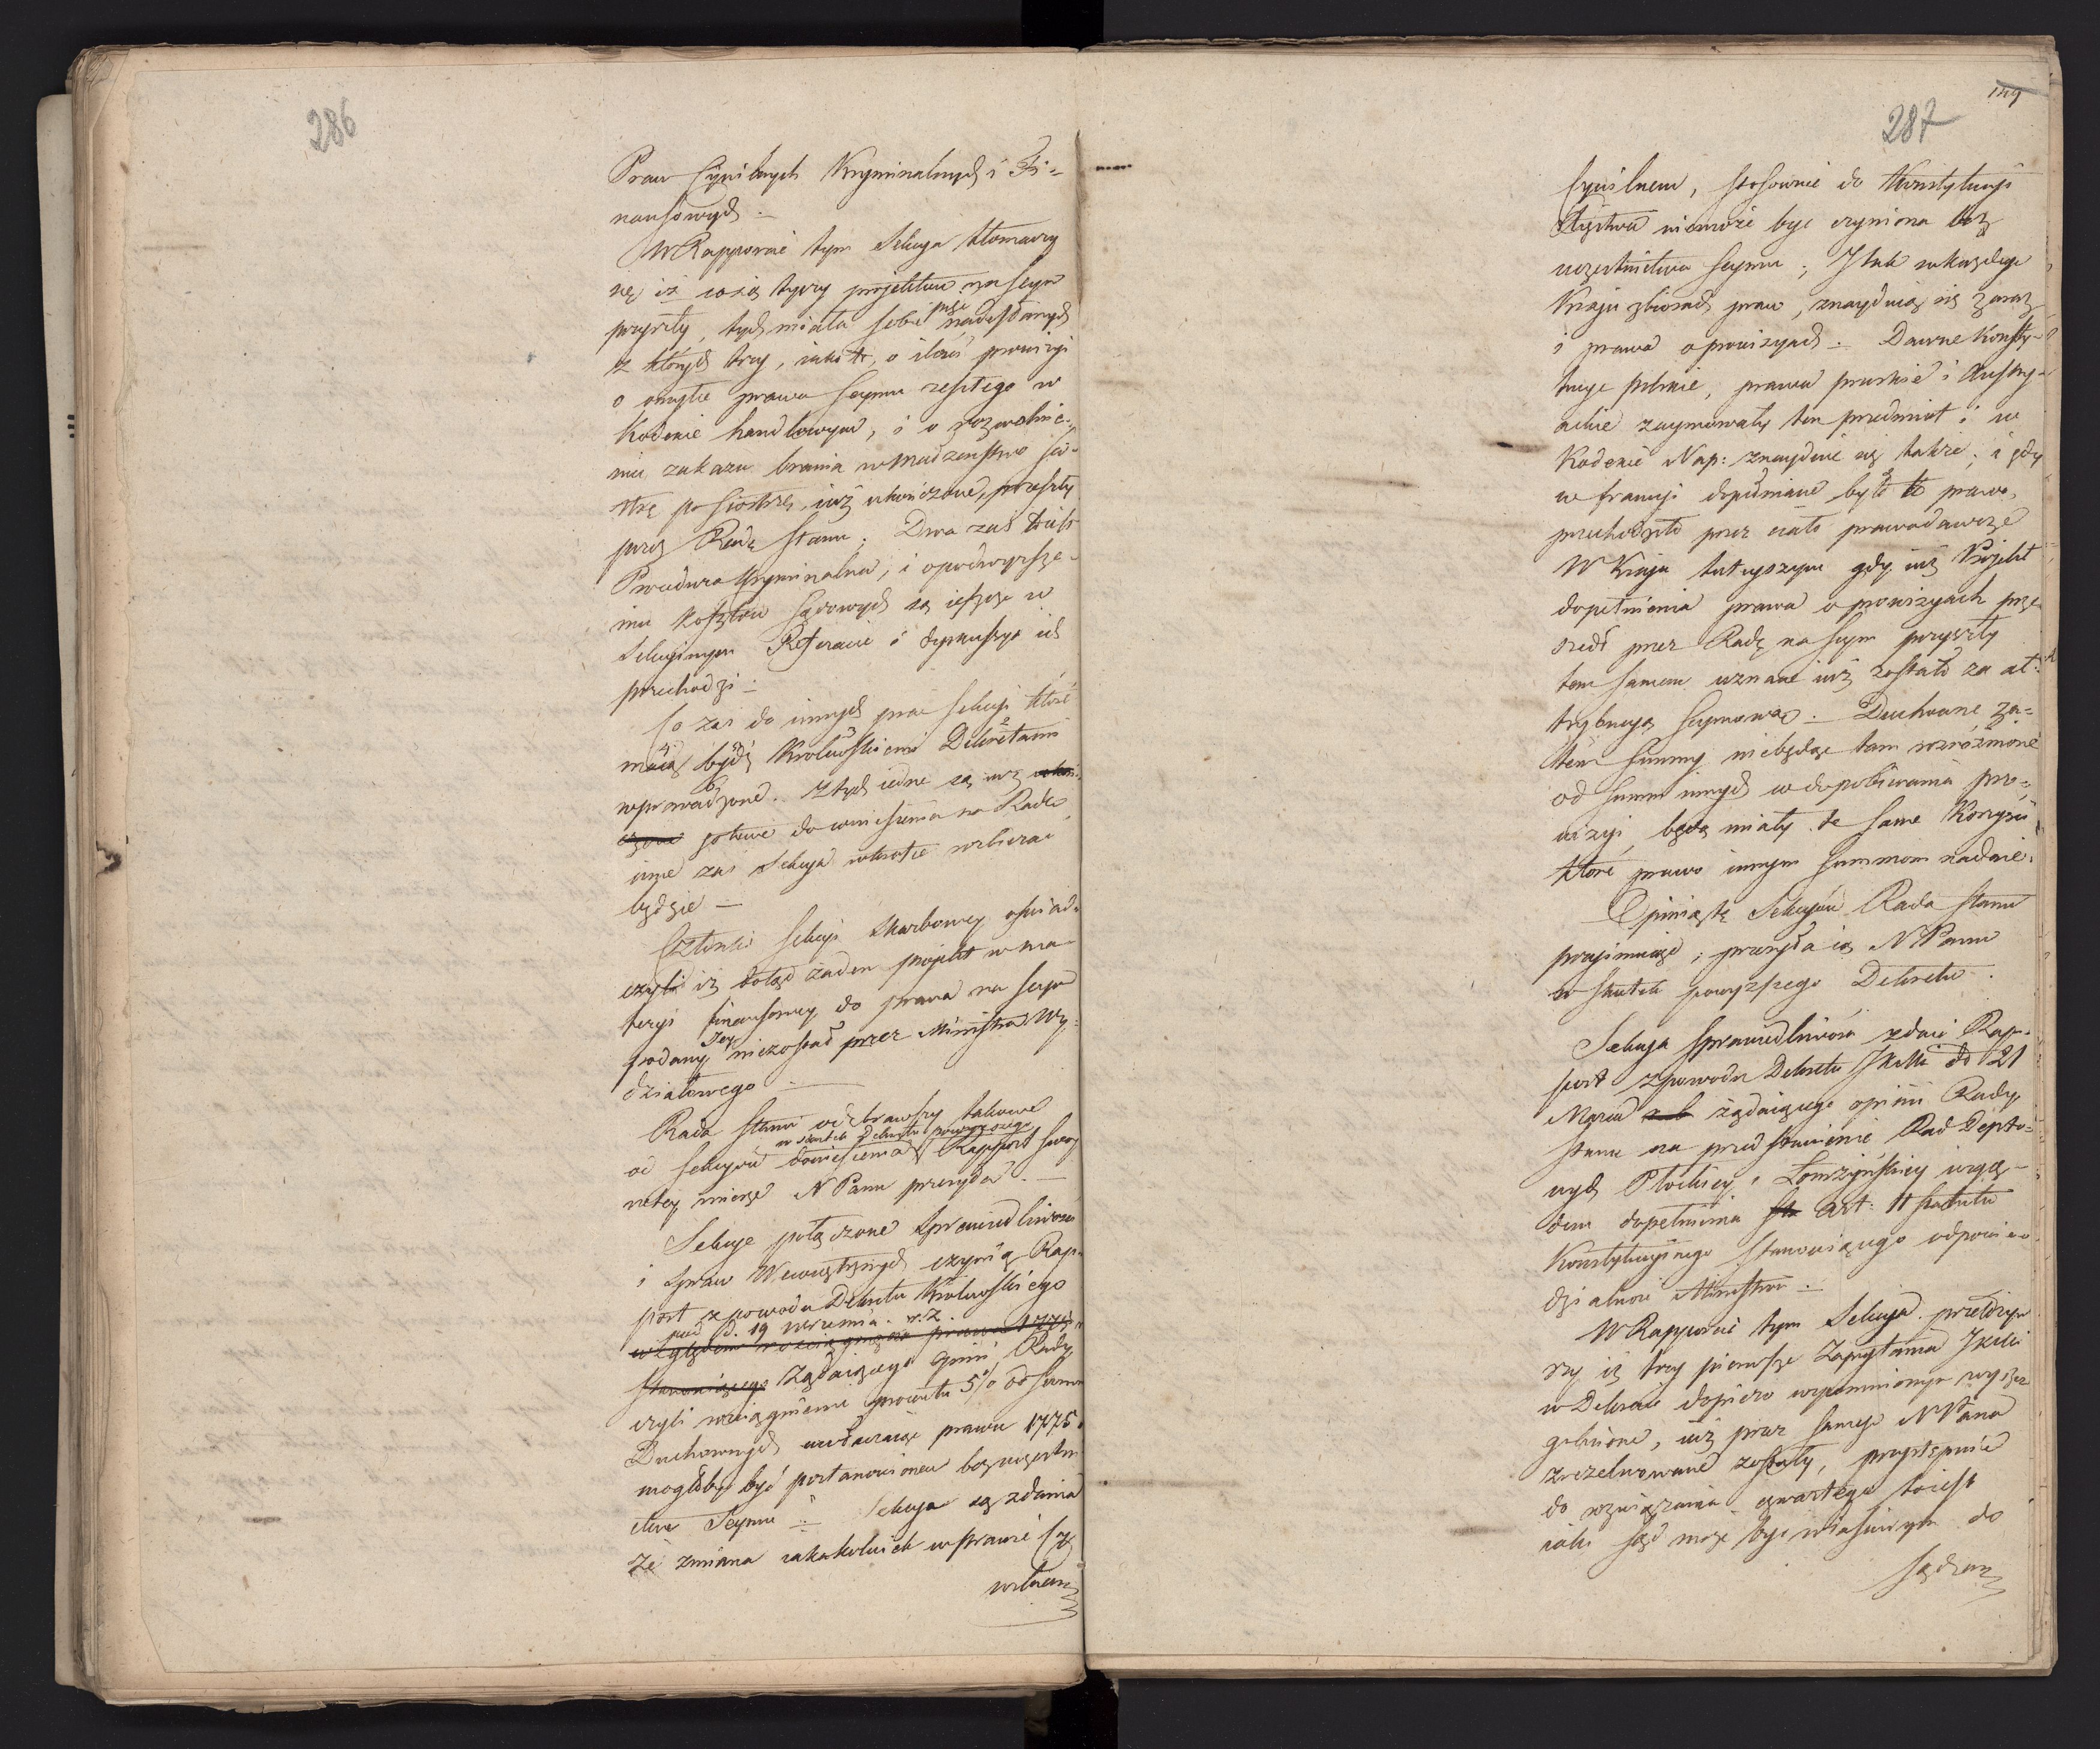 286
Praw Cywilnych Kryminalnych i Fi-
nansowych.
W Rapporcie tym Sekcya tłomaczy
się iż co się tyczy projektów na Seym
przyszły, tych miała sobie pięć nadesłanych
z których trzy, jako to, o ilości prowizyi
o omyłce prawa Seymu zeszłego w
Kodexie handlowym, i o pozwolnie-
niu zakazu brania w małżeństwo sio-
strę po siostrze, już ukończone, przeszły
przez Radę Stanu. Dwa zaś to iest
Procedura kryminalna, i o podwyższe-
niu kosztów sądowych są ieszcze w
Sekcyinym Referacie i dyskussye ich
przechodzi.
Co zaś do innych prac Sekcyi które
maią bydź Królewskiemi Dekretami
wprowadzone. Z tych iedne są już ukoń-
czone gotowe do wniesienia na Radę
inne zaś Sekcya wkrótce roztrząsać
będzie —
Członki Sekcyi Skarbowey oświad-
czyli iż dotąd żaden projekt w ma-
teryi finansowey do prawa na Seym
podany Jey niezostał przez Ministra Wy-
działowego —
Rada Stanu odebrawszy takowe
w skutek Dekretu powyższego
od Sekcyów doniesienia Rapport swoy
w tey mierze N Panu przesyła. —
Sekcye połączone Sprawiedliwości
i Spraw Wewnętrznych czynią Rap-
port z powodu Dekretu Królewskiego
pod d. 19 września r. z.
względem rozciągnienia prawa 1775
stanowiącego żądaiącego Opinii Rady
czyli rozciągnienie prowentu 5% od summ
Duchownych uwłaczaiąc prawu 1775.
mogłoby być postanowionem bez uczestni-
ctwa Seymu. Sekcye są zdania
że zmiana iakakolwiek w prawie Cy
wilnem
149
287
Cywilnem, stosownie do Konstytucyi
Xięstwa niemoże być czyniona bez
uczestnictwa Seymu; I tak w każdego
Kraju zbiorach praw, znayduią się zaraz
i prawa o prowizyach. Dawne Konsty-
tucye polskie, prawa pruskie i Austry-
ackie zaymowały ten przedmiot i w
Kodexie Nap: znayduie się także; i gdy
we francyi dopełniane było to prawo,
przechodziło przez ciało prawodawcze
W Kraju tuteyszym gdy już Projekt
dopełnienia prawa o prowizyach prze-
szedł przez Radę na Seym przyszły
tem samem uznane już zostało za at-
trybucyą Seymową. Duchowne za-
tém summy niebędąc tam rozróżnione
od summ innych w do pobierania pro-
wizyi, będą miały te same Korzyści
które prawo innym summom nadaie.
Opinią tę Sekcyów Rada Stanu
przyimuiąc, przesyła ią N Panu
w skutek powyższego Dekretu.
Sekcya Sprawiedliwości zdaie Rap-
port z powodu Dekretu JKMci do 21
Marca żądaiącego opinii Rady
Stanu na przedstawienie Rad Depto-
wych Płockiey i Łomżyńskiey wzglę-
dem dopełnienia Art: 11 Statutu
Konstytucyinego stanowiącego odpowie-
dzialność Ministrów.
W Rapporcie tym Sekcya przełożyw-
szy iż trzy pierwsze Zapytania JKMci
w Dekrecie dopiero wspomnionym wyszcze-
gólnione, już przez samego N Pana
zrezolwowane zostały, przystępuie
do rozwiązania czwartego to iest
iaki sąd może być właściwym do
sądzenia